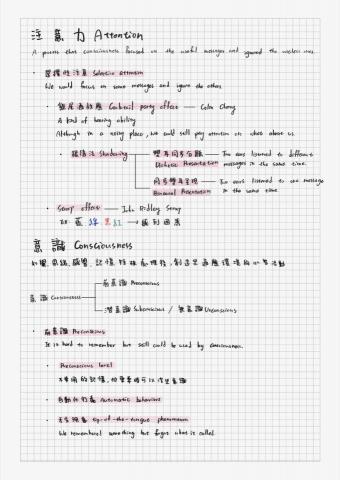 注意力 Attention
A process that consciousness focused on the useful messages and ignored the useless ones.
· 選擇性注意 Selective attention
We would focus on some messages and ignore the others
· 雞尾酒效應 Cocktail party effect — Colin Cherry
A kind of hearing ability
Although in a noisy place, we could still pay attention on about us
· Shadowing
Two ears listened to different
Dichotic Presentation messages in the same time.
Two ears listened to one message
Binaural Presentation in the same time.
· Stroop effect — John Ridley Stroop
藍 綠 黑 紅
意識 Consciousness
知覺、思緒、感覺、記憶
意識 Consciousness
前意識 Preconscious
潛意識 Subconscious / 無意識 Unconscious
· 前意識 Preconscious
It is hard to remember but still could be used by consciousness.
· Preconscious level
· 自動化行為 Automatic behaviors
· 舌尖現象 tip-of-the-tongue phenomenon
We remembered something but forgot what is called.